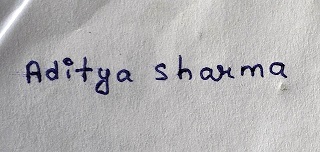 Aditya sharma